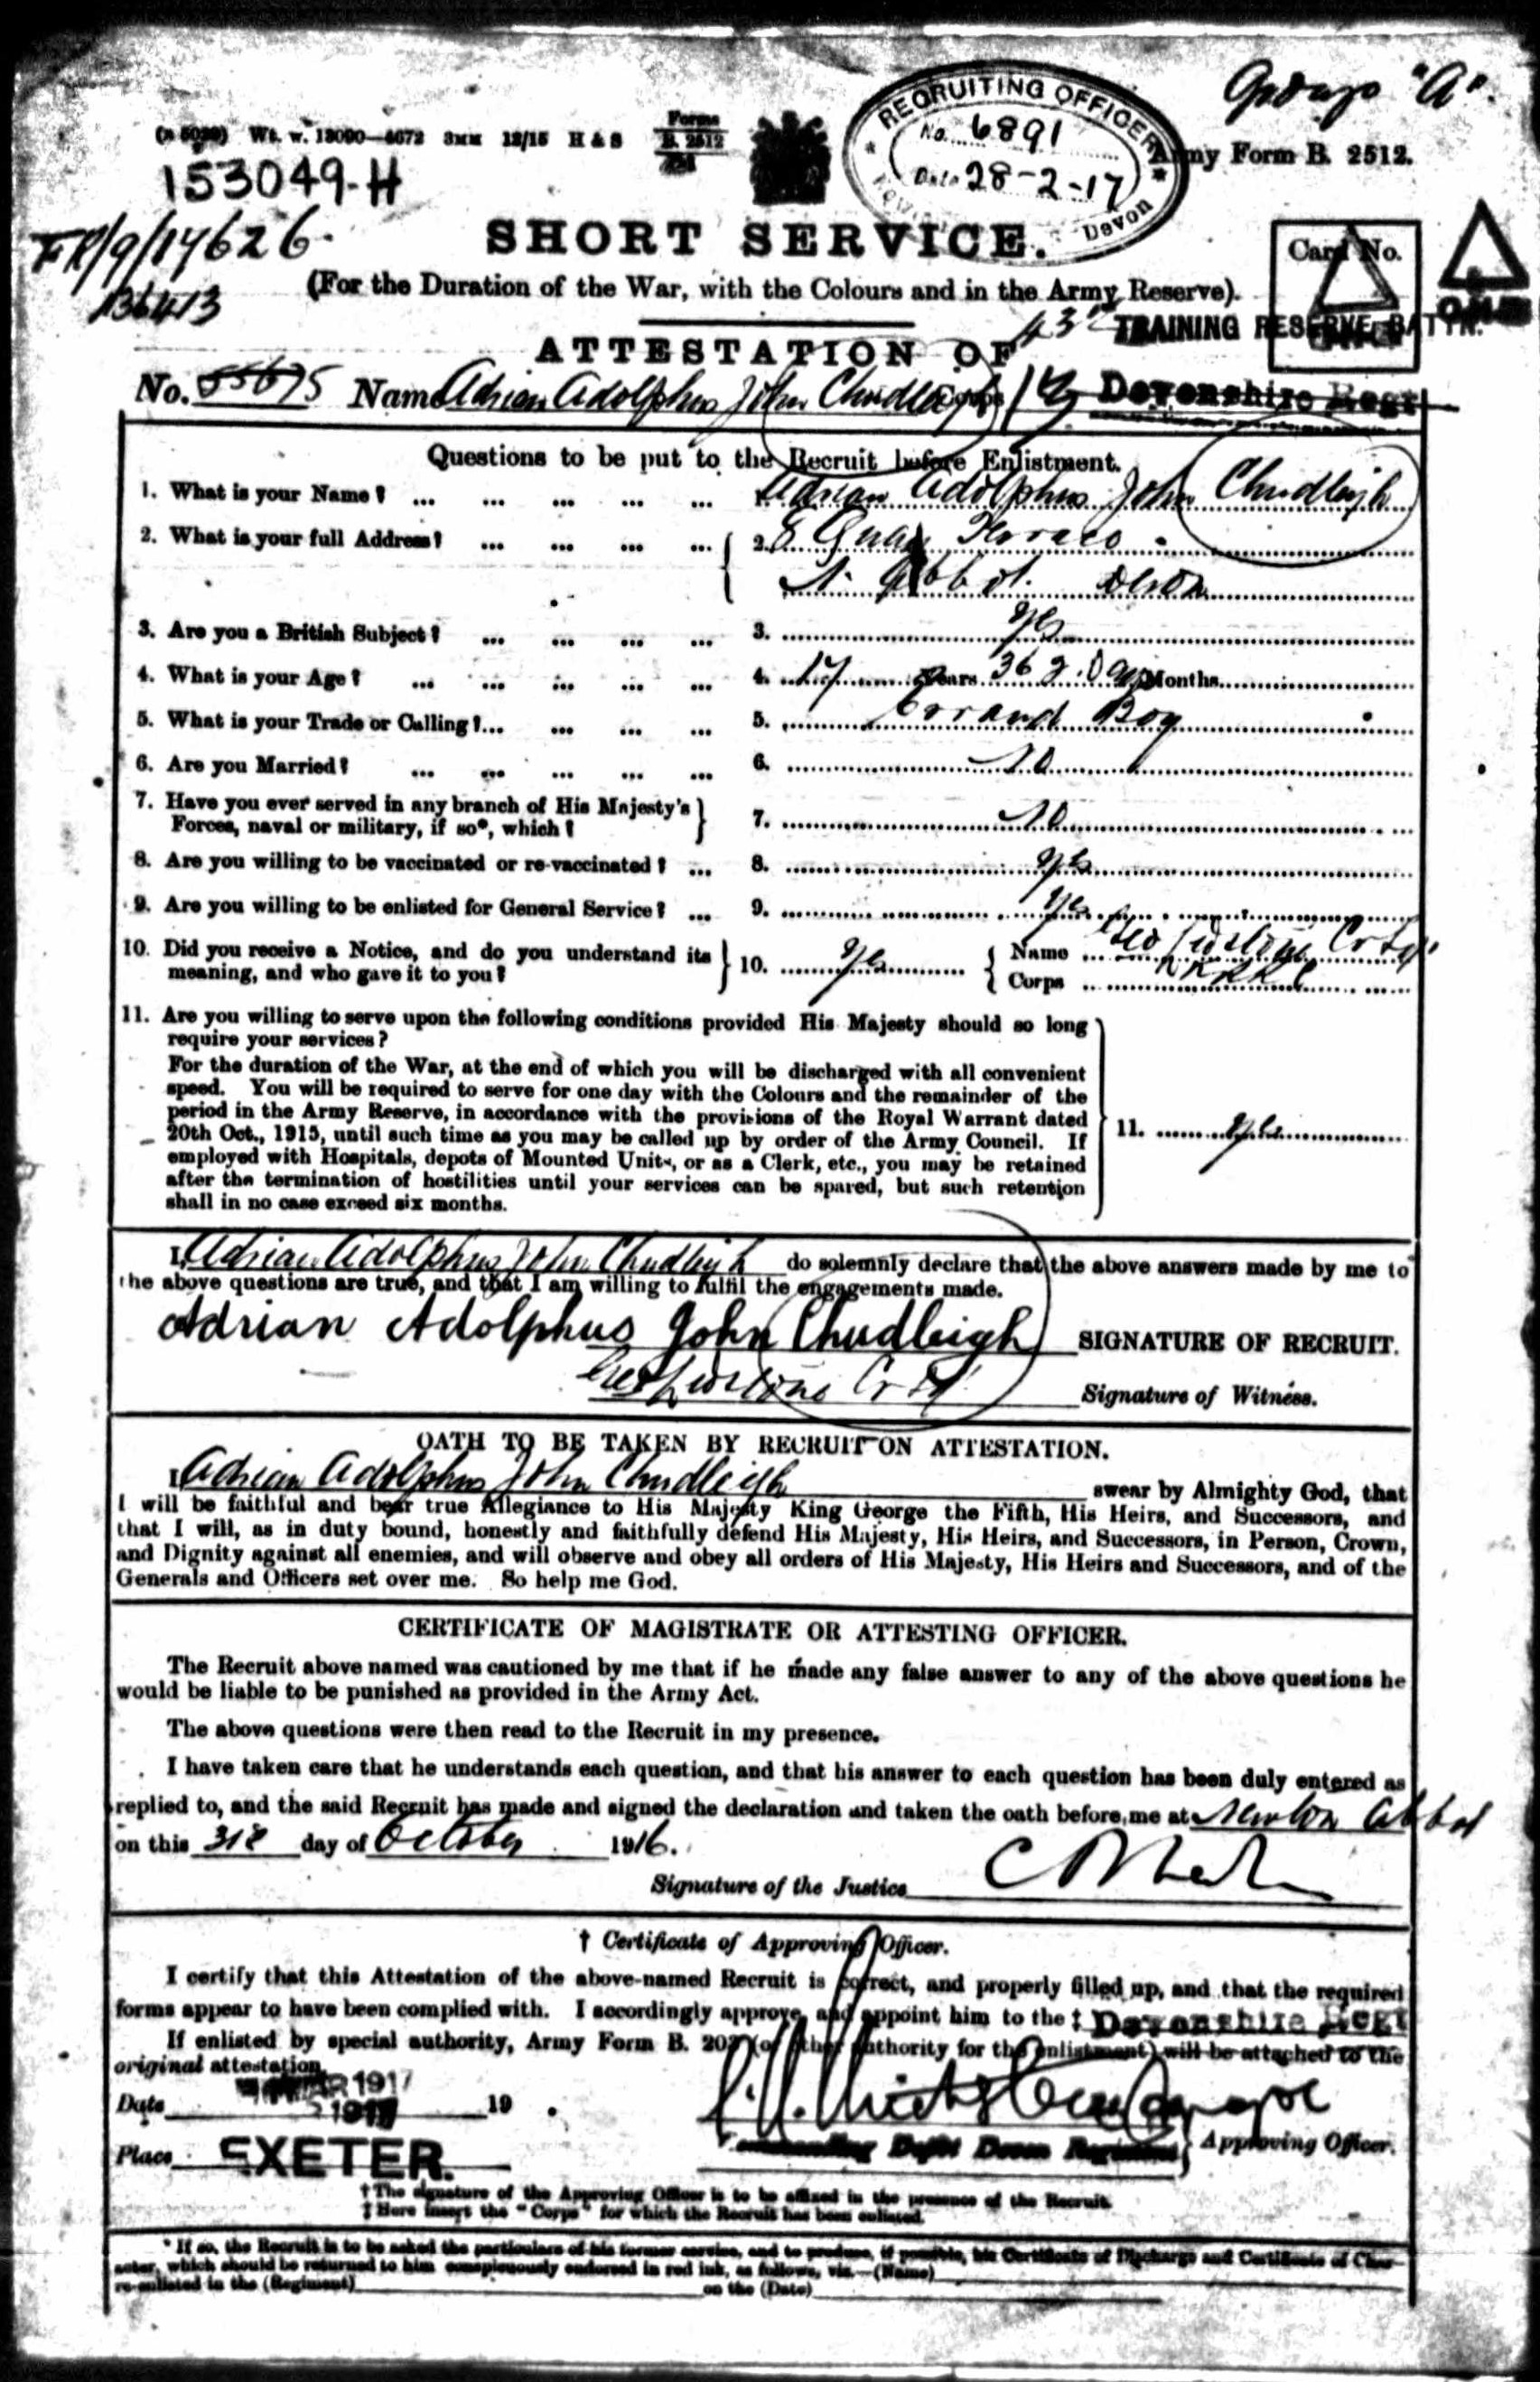 Group "A".
(a 5030) Wt. w. 18090—4672 3MM 12/15 H & S Forms B. 2512
RECRUITING OFFICER
No. 6891
Date 28-2-17
Devon
Army Form B. 2512.
153049-H
FR/9/17626
136413
SHORT SERVICE.
(For the Duration of the War, with the Colours and in the Army Reserve).
Card No.
43 TRAINING RESERVE BATTN.
ATTESTATION OF
No. 55675 Name Adrian Adolphus John Chudleigh Corps Devonshire Regt
Questions to be put to the Recruit before Enlistment.
1. What is your Name? ... ... ... ... ... 1. Adrian Adolphus John Chudleigh
2. What is your full Address? ... ... ... ... 2. 8 Quay Terrace
N. Abbot. Devon
3. Are you a British Subject? ... ... ... ... 3. Yes
4. What is your Age? ... ... ... ... ... 4. 17 Years 362 Days Months
5. What is your Trade or Calling?... ... ... ... 5. Errand Boy
6. Are you Married? ... ... ... ... ... 6. No
7. Have you ever served in any branch of His Majesty's
Forces, naval or military, if so*, which? 7. No
8. Are you willing to be vaccinated or re-vaccinated? ... 8. Yes
9. Are you willing to be enlisted for General Service? ... 9. Yes
10. Did you receive a Notice, and do you understand its
meaning, and who gave it to you? 10. Yes Name Geo
Corps
11. Are you willing to serve upon the following conditions provided His Majesty should so long
require your services?
For the duration of the War, at the end of which you will be discharged with all convenient
speed. You will be required to serve for one day with the Colours and the remainder of the
period in the Army Reserve, in accordance with the provisions of the Royal Warrant dated
20th Oct., 1915, until such time as you may be called up by order of the Army Council. If 11. Yes
employed with Hospitals, depots of Mounted Units, or as a Clerk, etc., you may be retained
after the termination of hostilities until your services can be spared, but such retention
shall in no case exceed six months.
I, Adrian Adolphus John Chudleigh do solemnly declare that the above answers made by me to
the above questions are true, and that I am willing to fulfil the engagements made.
Adrian Adolphus John Chudleigh SIGNATURE OF RECRUIT.
Signature of Witness.
OATH TO BE TAKEN BY RECRUIT ON ATTESTATION.
I Adrian Adolphus John Chudleigh swear by Almighty God, that
I will be faithful and bear true Allegiance to His Majesty King George the Fifth, His Heirs, and Successors, and
that I will, as in duty bound, honestly and faithfully defend His Majesty, His Heirs, and Successors, in Person, Crown,
and Dignity against all enemies, and will observe and obey all orders of His Majesty, His Heirs and Successors, and of the
Generals and Officers set over me. So help me God.
CERTIFICATE OF MAGISTRATE OR ATTESTING OFFICER.
The Recruit above named was cautioned by me that if he made any false answer to any of the above questions he
would be liable to be punished as provided in the Army Act.
The above questions were then read to the Recruit in my presence.
I have taken care that he understands each question, and that his answer to each question has been duly entered as
replied to, and the said Recruit has made and signed the declaration and taken the oath before me at Newton Abbot
on this 31st day of October 1916.
Signature of the Justice
† Certificate of Approving Officer.
I certify that this Attestation of the above-named Recruit is correct, and properly filled up, and that the required
forms appear to have been complied with. I accordingly approve, and appoint him to the ‡ Devonshire Regt
If enlisted by special authority, Army Form B. 203 (or other authority for the enlistment) will be attached to the
original attestation.
Date MAR 1917 19 .
Place EXETER. Commanding Depot Devon Regiment Approving Officer.
† The signature of the Approving Officer is to be affixed in the presence of the Recruit.
‡ Here insert the "Corps" for which the Recruit has been enlisted.
* If so, the Recruit is to be asked the particulars of his former service, and to produce, if possible, his Certificate of Discharge and Certificate of Char-
acter, which should be returned to him conspicuously endorsed in red ink, as follows, viz.—(Name)
re-enlisted in the (Regiment) on the (Date)